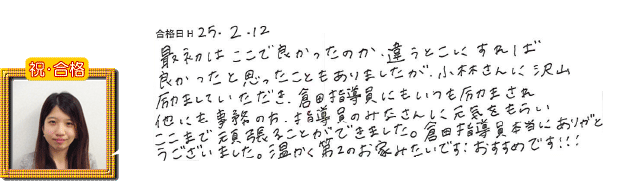 合格日 H 25. 2. 12
祝・合格
最初は ここで良かったのか、違うとこにすれば
良かったと思ったこともありましたが、小林さんに沢山
励ましていただき、倉田指導員にもいつも励まされ
他にも事務の方、指導員のみなさんに元気をもらい
ここまで頑張ることができました。倉田指導員本当にありがと
うございました。温かく第2のお家みたいです!おすすめです!!!